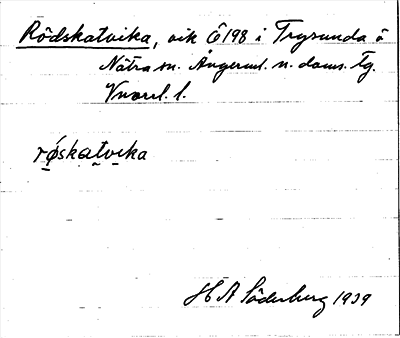 Rödskatvika, vik Ö198 i Trysunda ö
Nätra sn. Ångerml. n. doms. tg.
Vnorrl. l.
røskatvika
H A Söderberg 1939